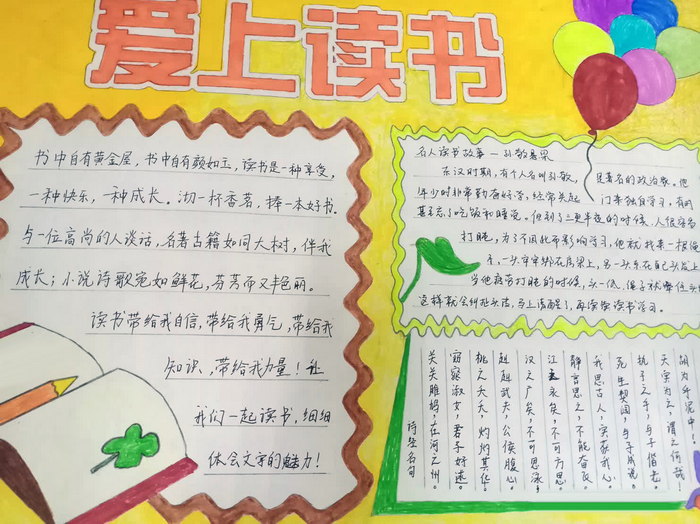 爱上读书
书中自有黄金屋,书中自有颜如玉,读书是一种享受,
一种快乐,一种成长。沏一杯香茗,捧一本好书,
与一位高尚的人谈话,名著古籍如同大树,伴我
成长;小说诗歌宛如鲜花,芬芳而又丰艳丽。
读书带给我自信,带给我勇气,带给我
知识,带给我力量!让
我们一起读书,细细
体会文字的魅力!
名人读书故事—孙敬悬梁
在汉时期,有个人名叫孙敬, 是著名的政治家。他
年少时非常勤奋好学,经常关起 门来独自学习,有时
甚至忘了吃饭和睡觉。但到了三更半夜的时候,人很容易
打盹,为了不因此而影响学习,他就找来一根绳
子,一头牢牢绑在房梁上,另一头系在自己头发上
当他疲劳打盹的时候,头一低,绳子就
这样就会纠扯头皮,马上清醒了,再继续读书学习。
诗经名句
关关雎鸠,在河之洲。
窈窕淑女,君子好逑。
桃之夭夭,灼灼其华。
赳赳武夫,公侯腹心。
汉之广矣,不可泳
江之永矣,不可方思。
静言思之,不能奋飞
我思古人,实获我心。
死生契阔,与子成说。
执子之手,与子偕老。
天实为之,谓之何哉。